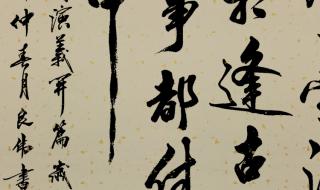 逢古
事都付
中
演義开篇
仲春月良伟書